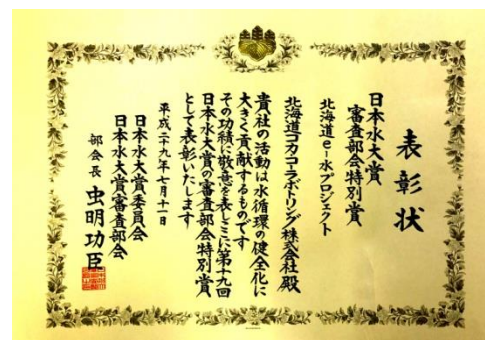 表彰状
日本水大賞
審査部会特別賞
北海道e-水プロジェクト
北海道コカコーラボトリング株式会社殿
貴社の活動は水循環の健全化に
大きく貢献するものです
その功績に敬意を表しここに第十九回
日本水大賞の審査部会特別賞
として表彰いたします
平成二十九年七月十一日
日本水大賞委員会
日本水大賞審査部会
部会長 虫明功臣